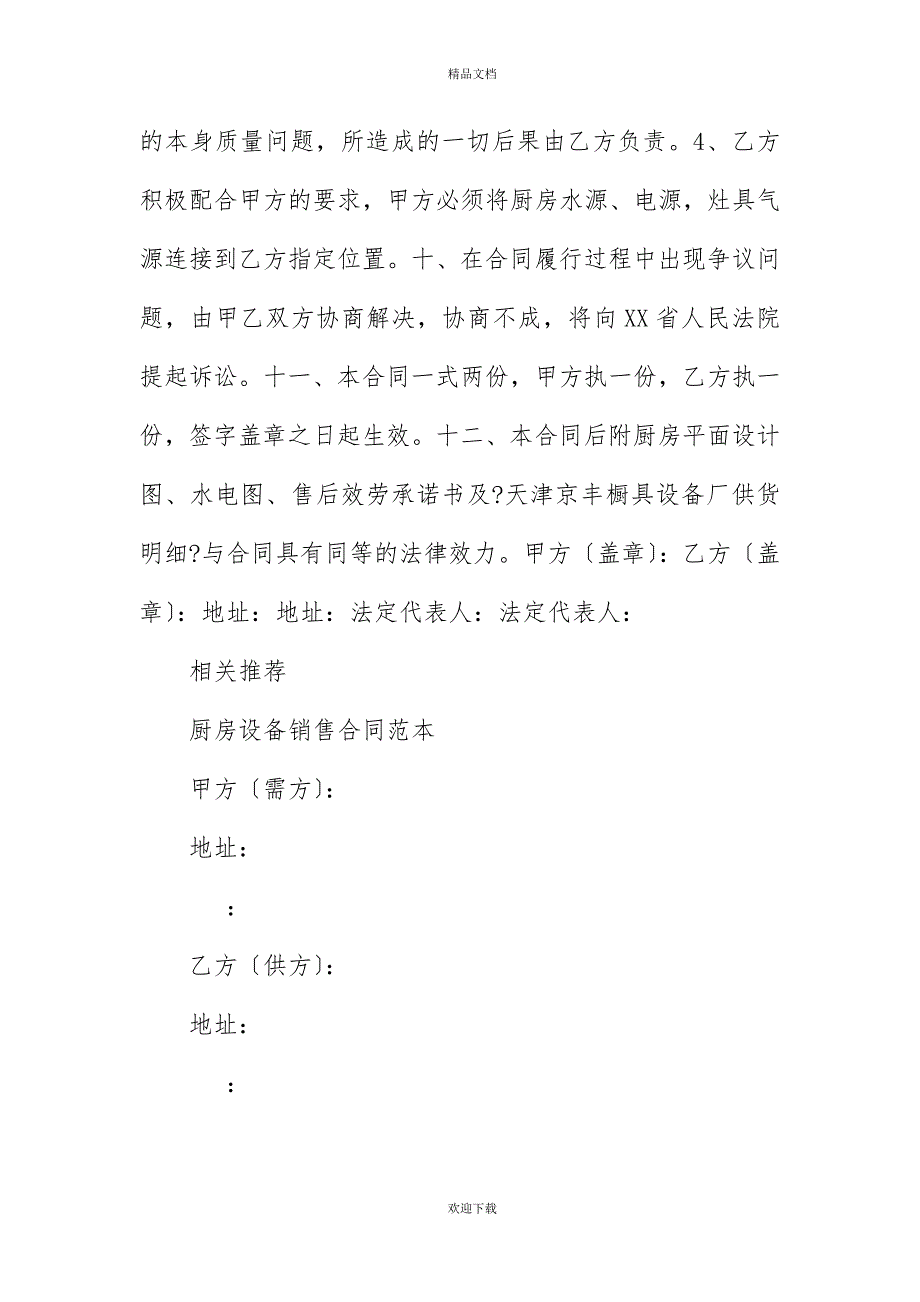 精品文档
的本身质量问题，所造成的一切后果由乙方负责。4、乙方
积极配合甲方的要求，甲方必须将厨房水源、电源，灶具气
源连接到乙方指定位置。十、在合同履行过程中出现争议问
题，由甲乙双方协商解决，协商不成，将向XX省人民法院
提起诉讼。十一、本合同一式两份，甲方执一份，乙方执一
份，签字盖章之日起生效。十二、本合同后附厨房平面设计
图、水电图、售后效劳承诺书及?天津京丰橱具设备厂供货
明细?与合同具有同等的法律效力。甲方〔盖章〕：乙方〔盖
章〕：地址：地址：法定代表人：法定代表人：
相关推荐
厨房设备销售合同范本
甲方〔需方〕：
地址：
：
乙方〔供方〕：
地址：
：
欢迎下载